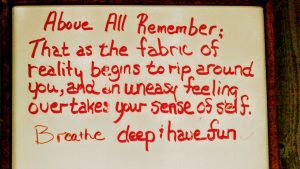 Above All Remember;
That as the fabric of
reality begins to rip around
you, and an uneasy feeling
overtakes your sense of self.
Breathe deep & have fun